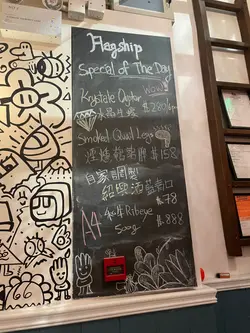 Flagship
Special of The Day
Krystale Oyster
水晶生蠔 $280/6pcs
Smoked Quail Legs
煙燒鵪鶉髀 $158
自家調製
紹興酒藍青口
$78
A4 和牛 Ribeye
500g $888